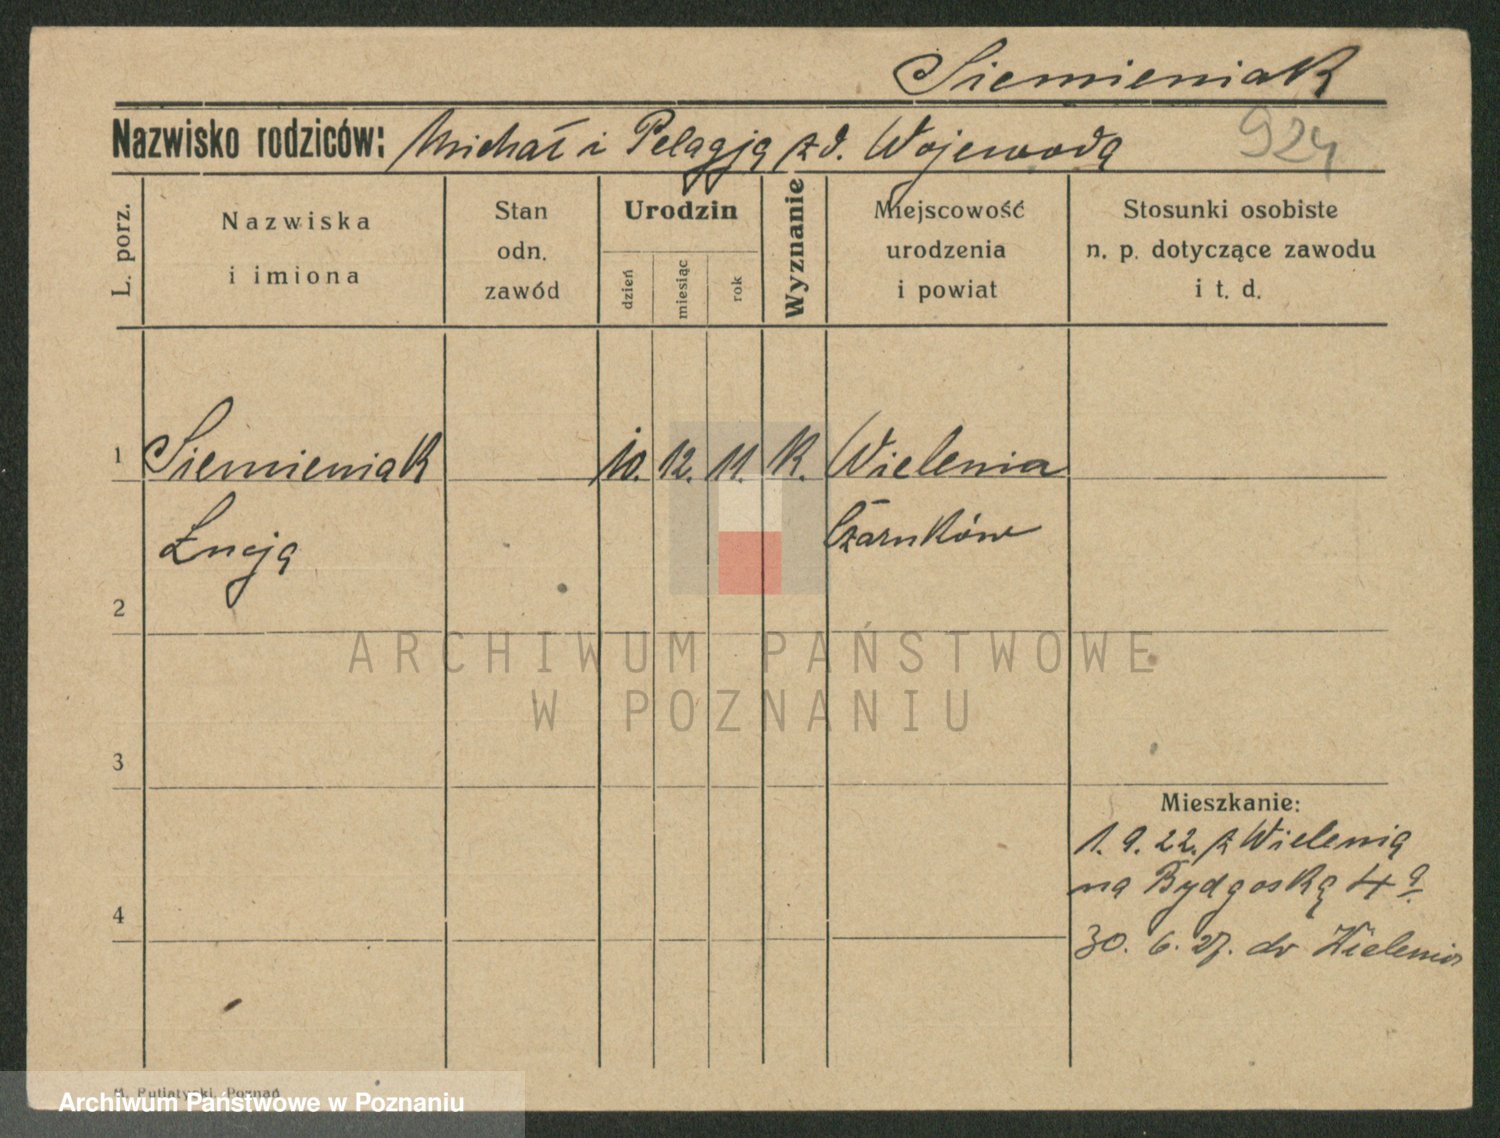 Siemieniak
Nazwisko rodziców: Michał i Pelagją zd. Wojewodą
924
L. porz.
Nazwiska
i imiona
Stan
odn.
zawód
Urodzin
dzień
miesiąc
rok
Wyznanie
Miejscowość
urodzenia
i powiat
Stosunki osobiste
n. p. dotyczące zawodu
i t. d.
1 Siemieniak 10. 12. 11. K. Wielenia
Łucją Czarnków
2
ARCHIWUM PAŃSTWOWE
W POZNANIU
3
Mieszkanie:
1. 9. 22. z Wielenią
na Bydgoską 4a
4
30. 6. 27. do Wielenia
Poznań
Archiwum Państwowe w Poznaniu